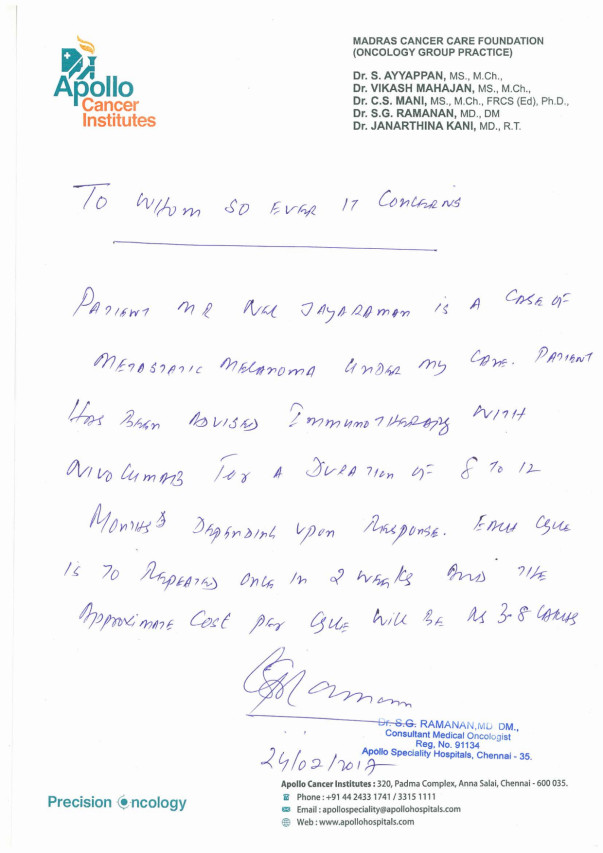 Apollo
Cancer
Institutes
MADRAS CANCER CARE FOUNDATION
(ONCOLOGY GROUP PRACTICE)
Dr. S. AYYAPPAN, MS., M.Ch.,
Dr. VIKASH MAHAJAN, MS., M.Ch.,
Dr. C.S. MANI, MS., M.Ch., FRCS (Ed), Ph.D.,
Dr. S.G. RAMANAN, MD., DM
Dr. JANARTHINA KANI, MD., R.T.
TO WHOM SO EVER IT CONCERNS
PATIENT MR NEL JAYARAMAN IS A CASE OF
METASTATIC MELANOMA UNDER MY CARE. PATIENT
HAS BEEN ADVISED IMMUNOTHERAPY WITH
NIVOLUMAB FOR A DURATION OF 8 TO 12
MONTHS DEPENDING UPON RESPONSE. EACH CYCLE
IS TO REPEATED ONCE IN 2 WEEKS AND THE
APPROXIMATE COST PER CYCLE WILL BE RS 3.8 LAKHS
Dr. S.G. RAMANAN,MD DM.,
Consultant Medical Oncologist
Reg. No. 91134
Apollo Speciality Hospitals, Chennai - 35.
24/02/2017
Apollo Cancer Institutes : 320, Padma Complex, Anna Salai, Chennai - 600 035.
Phone : +91 44 2433 1741 / 3315 1111
Email : apollospeciality@apollohospitals.com
Web : www.apollohospitals.com
Precision Oncology